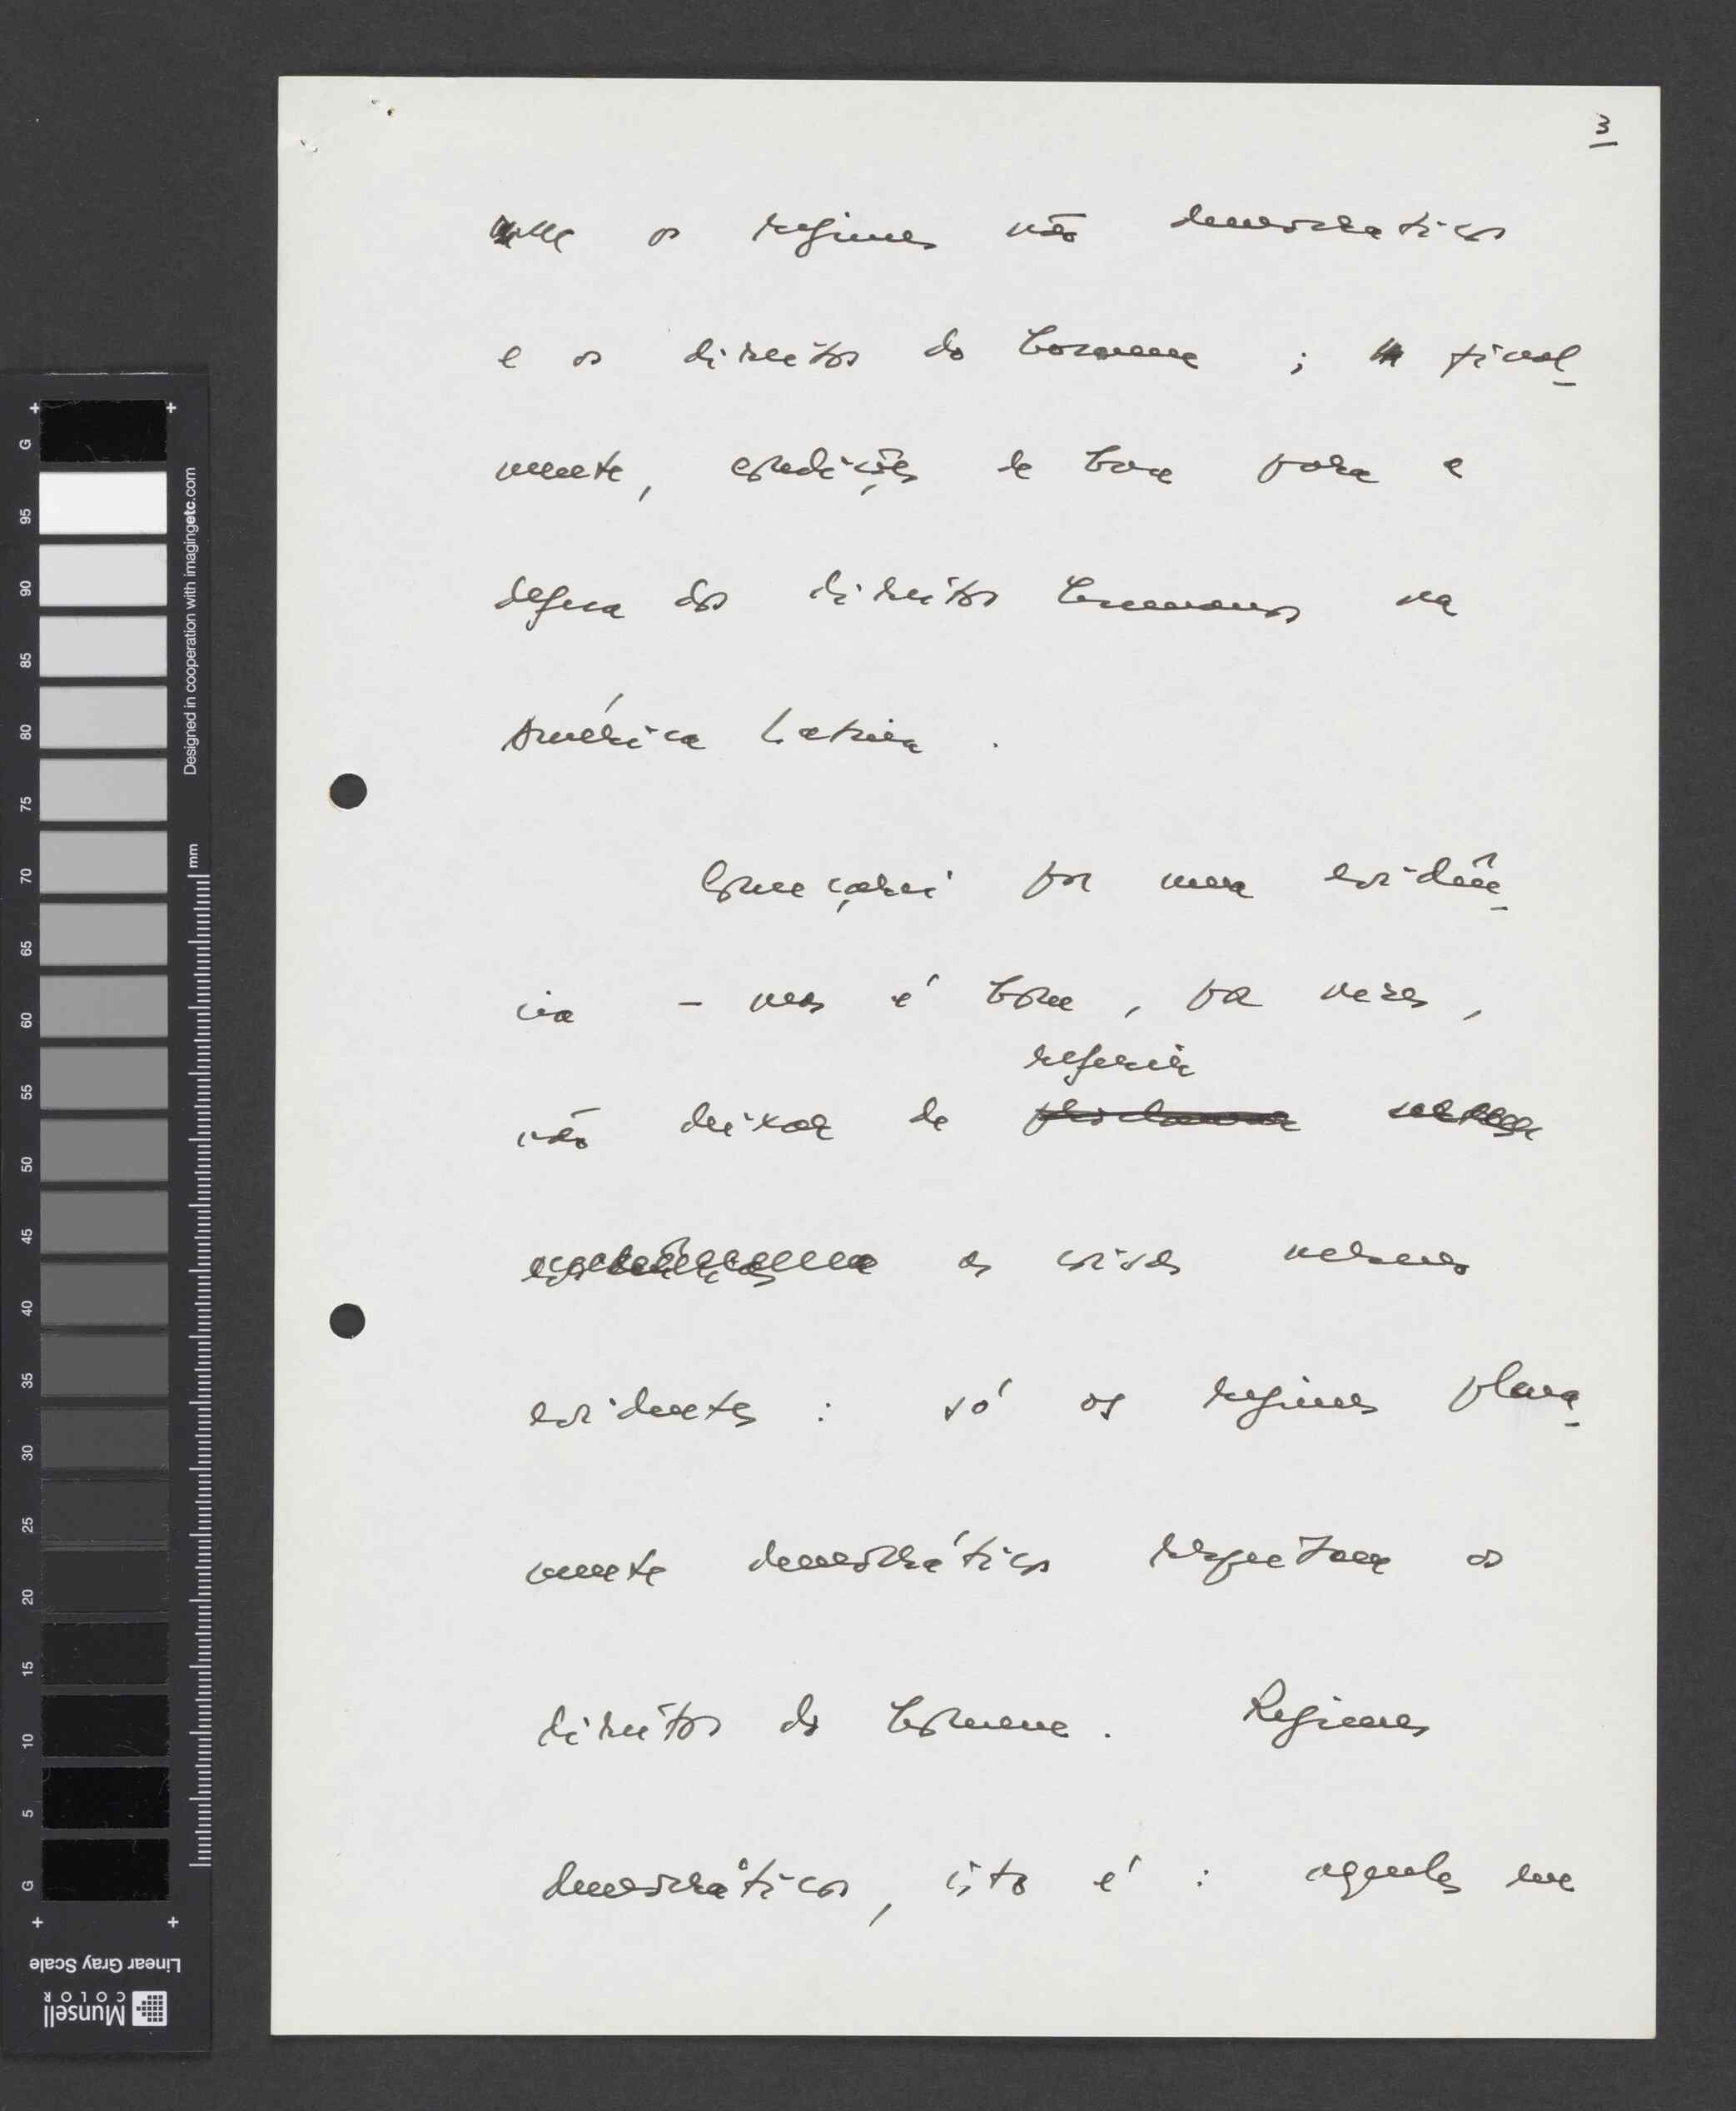 3
os regimes não democraticos
e os direitos do homem ; final-
mente, condições de luta para a
defesa dos direitos humanos na
América Latina .
Começarei por uma evidên-
cia - mas é bom , por vezes ,
referir
não deixar de
as coisas mesmo
evidentes : só os regimes plena-
mente democráticos respeitam os
direitos do homem . Regimes
democráticos, isto é : aqueles em
G
95
90
85
80
75
70
65
60
55
50
45
40
35
30
25
20
15
10
5
G
mm
Designed in cooperation with imagingetc.com
Linear Gray Scale
Munsell
COLOR